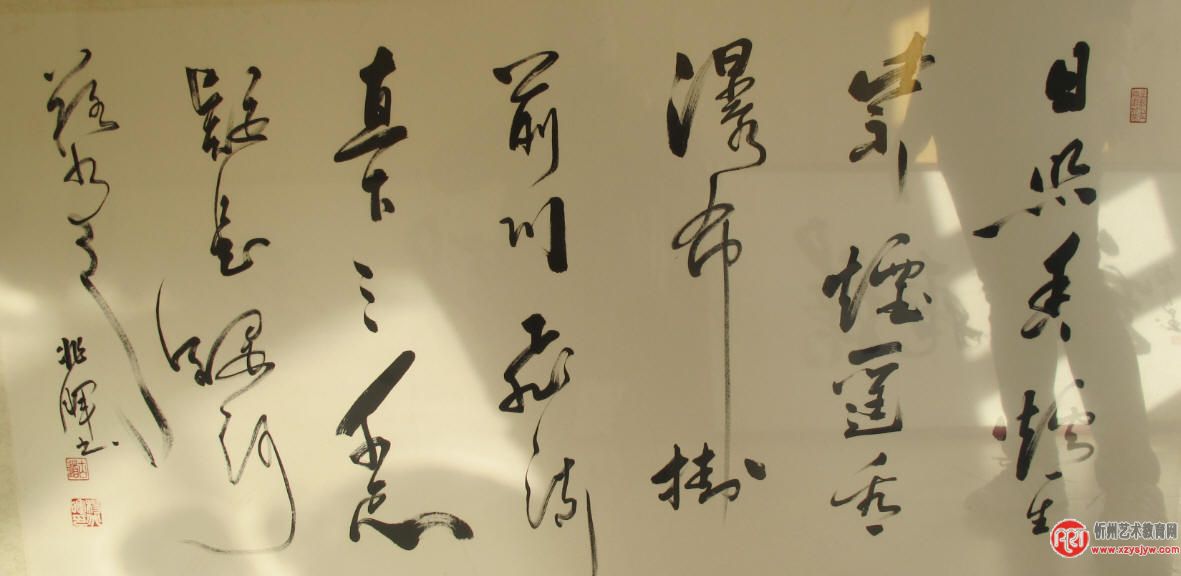 日照香爐生
紫煙遥看
瀑布掛
前川飛流
直下三千尺
疑是銀河
落九天
兆暉书
忻州艺术教育网
www.xzysjyw.com